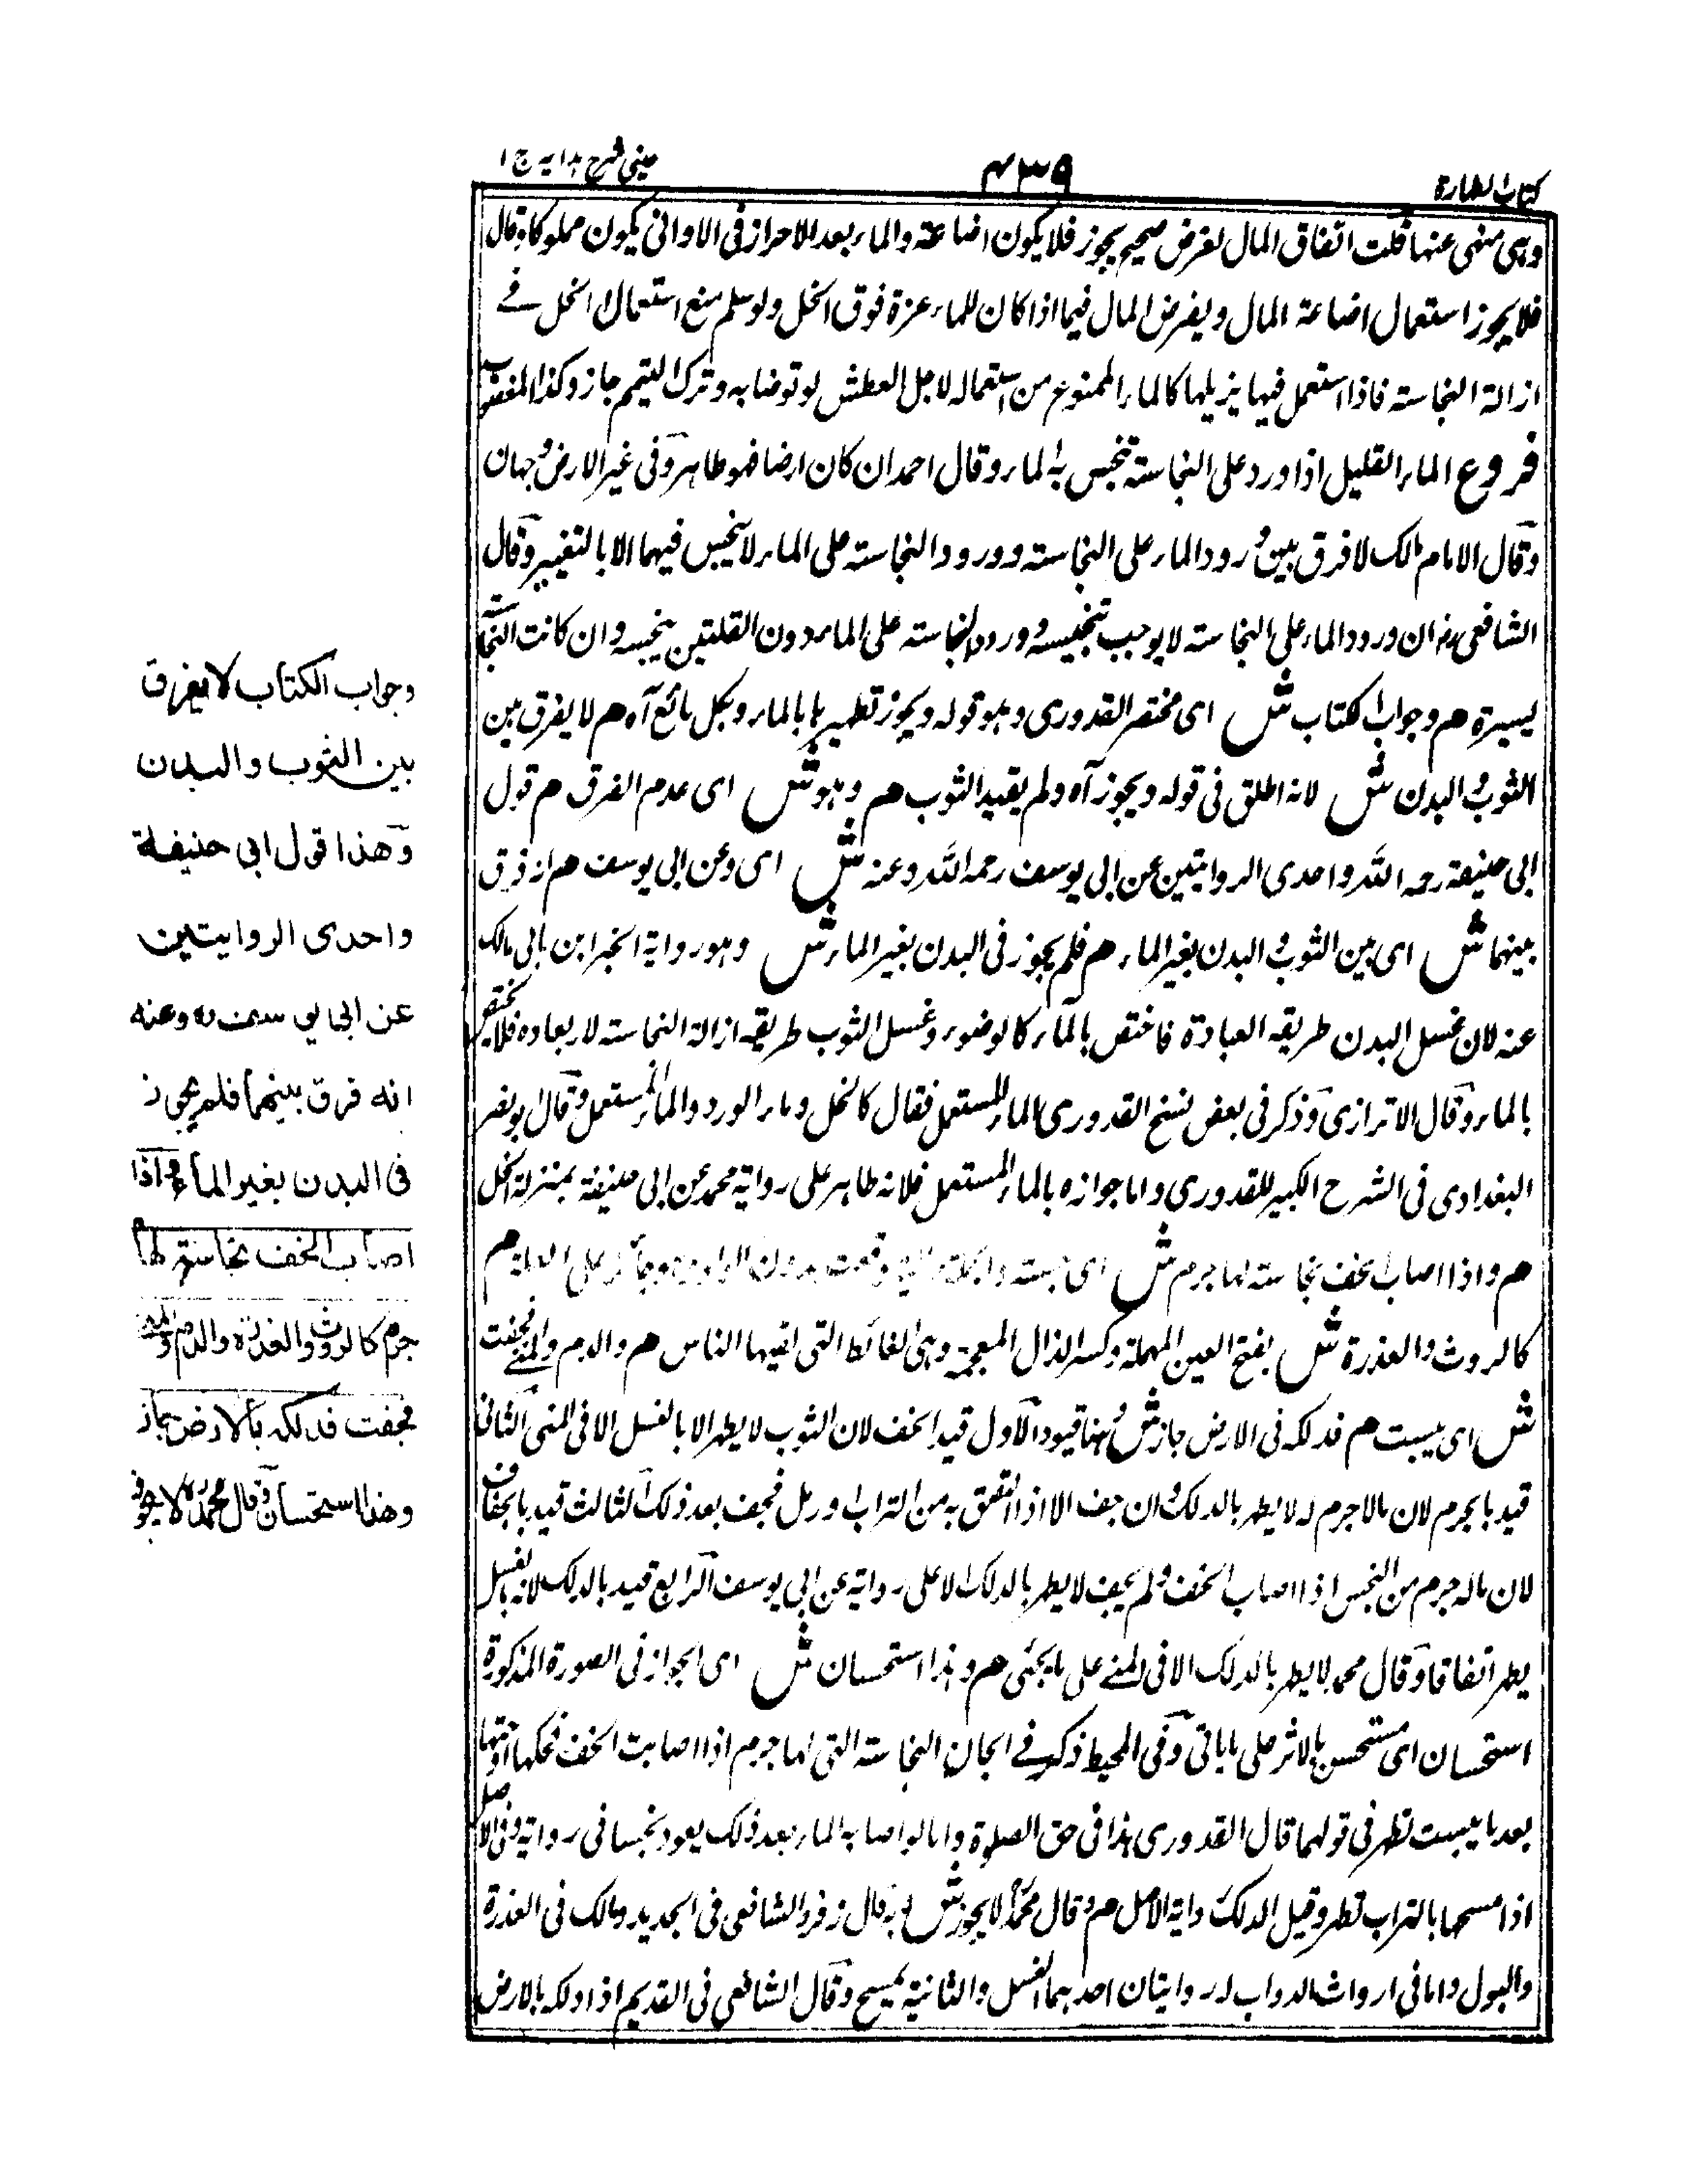 كتاب الطهارة
٤٣٩
عيني شرح هدايه ج ١
وهي منهي عنها قلت اتفاق المال لغرض صحيح يجوز فلا يكون اضاعة والماء بعد الاحراز في الاواني يكون مملوكا وقال
فلا يجوز استعمال اضاعة المال ويفرض المال فيما اذا كان للماء عزة فوق الخل ولو سلم منع استعمال الخل في
ازالة النجاسته فاذا استعمل فيها يزيلها كالماء الممنوع من استعماله لاجل العطش لو توضا به وترك التيمم جاز وكذا المغصوب
فروع الماء القليل اذا ورد على النجاسته تنجس به الماء وقال احمد ان كان ارضا فهو طاهر وفي غير الارض وجهان
وقال الامام مالك لا فرق بين ورود الماء على النجاسته وورود النجاسته على الماء لا ينجس فيهما الا بالتغيير وقال
الشافعي ان ورود الماء على النجاسته لا يوجب تنجيسه وورود النجاسته على الماء دون القلتين ينجسه وان كانت النجاسته
يسيرة هم وجواب الكتاب ش اى مختصر القدورى وهو قوله ويجوز تطهيرها بالماء وبكل مائع آه هم لا يفرق بين
الثوب والبدن ش لانه اطلق في قوله ويجوز آه ولم يقيد الثوب هم وهو ش اى عدم الفرق هم قول
ابي حنيفة رحمه الله واحدى الروايتين عن ابي يوسف رحمه الله وعنه ش اى وعن ابي يوسف هم انه فرق
بينهما ش اى بين الثوب والبدن بغير الماء هم فلم يجوز في البدن بغير الماء ش وهو رواية الخبر ابن ابي مالك
عنه لان غسل البدن طريقه العبادة فاختص بالماء كالوضوء وغسل الثوب طريقه ازالة النجاسته لا ربعاده فلا يختص
بالماء وقال الاترازى وذكر في بعض نسخ القدورى الماء المستعمل فقال كالخل وماء الورد والماء المستعمل وقال ابو نصر
البغدادى في الشرح الكبير للقدورى واما جوازه بالماء المستعمل فلانه طاهر على رواية محمد عن ابي حنيفة بمنزلة الخل
هم واذا اصاب الخف نجاسته لها جرم ش اى
كالروث والعذرة ش بفتح العين المهملة وكسر الذال المعجمة وهي الغائط التى القيها الناس هم والدم والمنى فجفت
ش اى يبست هم فدلكه في الارض جاز ش وههنا قيود الاول قيد الخف لان الثوب لا يطهر الا بالغسل الا في المنى الثاني
قيد بالجرم لان مالا جرم له لا يطهر بالدلك وان جف الا اذا التصق به من التراب او رمل فجف بعد ذلك الثالث قيد بالجفاف
لان ماله جرم من النجس اذا اصاب الخف ولم يجف لا يطهر بالدلك الا على رواية عن ابي يوسف الرابع قيد بالدلك لانه بالغسل
يطهر اتفاقا وقال محمد لا يطهر بالدلك الا في المنى على ما يجئى هم وهذا استحسان ش اى الجواز في الصورة المذكورة
استحسان اى مستحسن بالاثر على ما ياتي وفي المحيط ذكر في النجاسته التى لها جرم اذا اصابت الخف فحكها او حتها
بعد ما يبست تطهر في قولهما قال القدورى هذا في حق الصلوة واما لو اصابه الماء بعد ذلك يعود نجسا في رواية وفي الاصل
اذا مسحها بالتراب تطهر وقيل الدلك رواية الاصل هم وقال محمد لا يجوز ش وبه قال زفر والشافعي في الجديد ومالك في العذرة
والبول واما في ارواث الدواب له روايتان احدهما الغسل والثانية يمسح وقال الشافعي في القديم اذا دلكه بالارض
وجواب الكتاب لا يفرق
بين الثوب والبدن
وهذا قول ابى حنيفة
واحدى الروايتين
عن ابى يوسف ره وعنه
انه فرق بينهما فلم يجوز
فى البدن بغير الماء واذا
اصاب الخف نجاسة لها
جرم كالروث والعذرة والدم والمنى
فجفت فدلكه بالارض جاز
وهذا استحسان وقال محمد ره لا يجوز